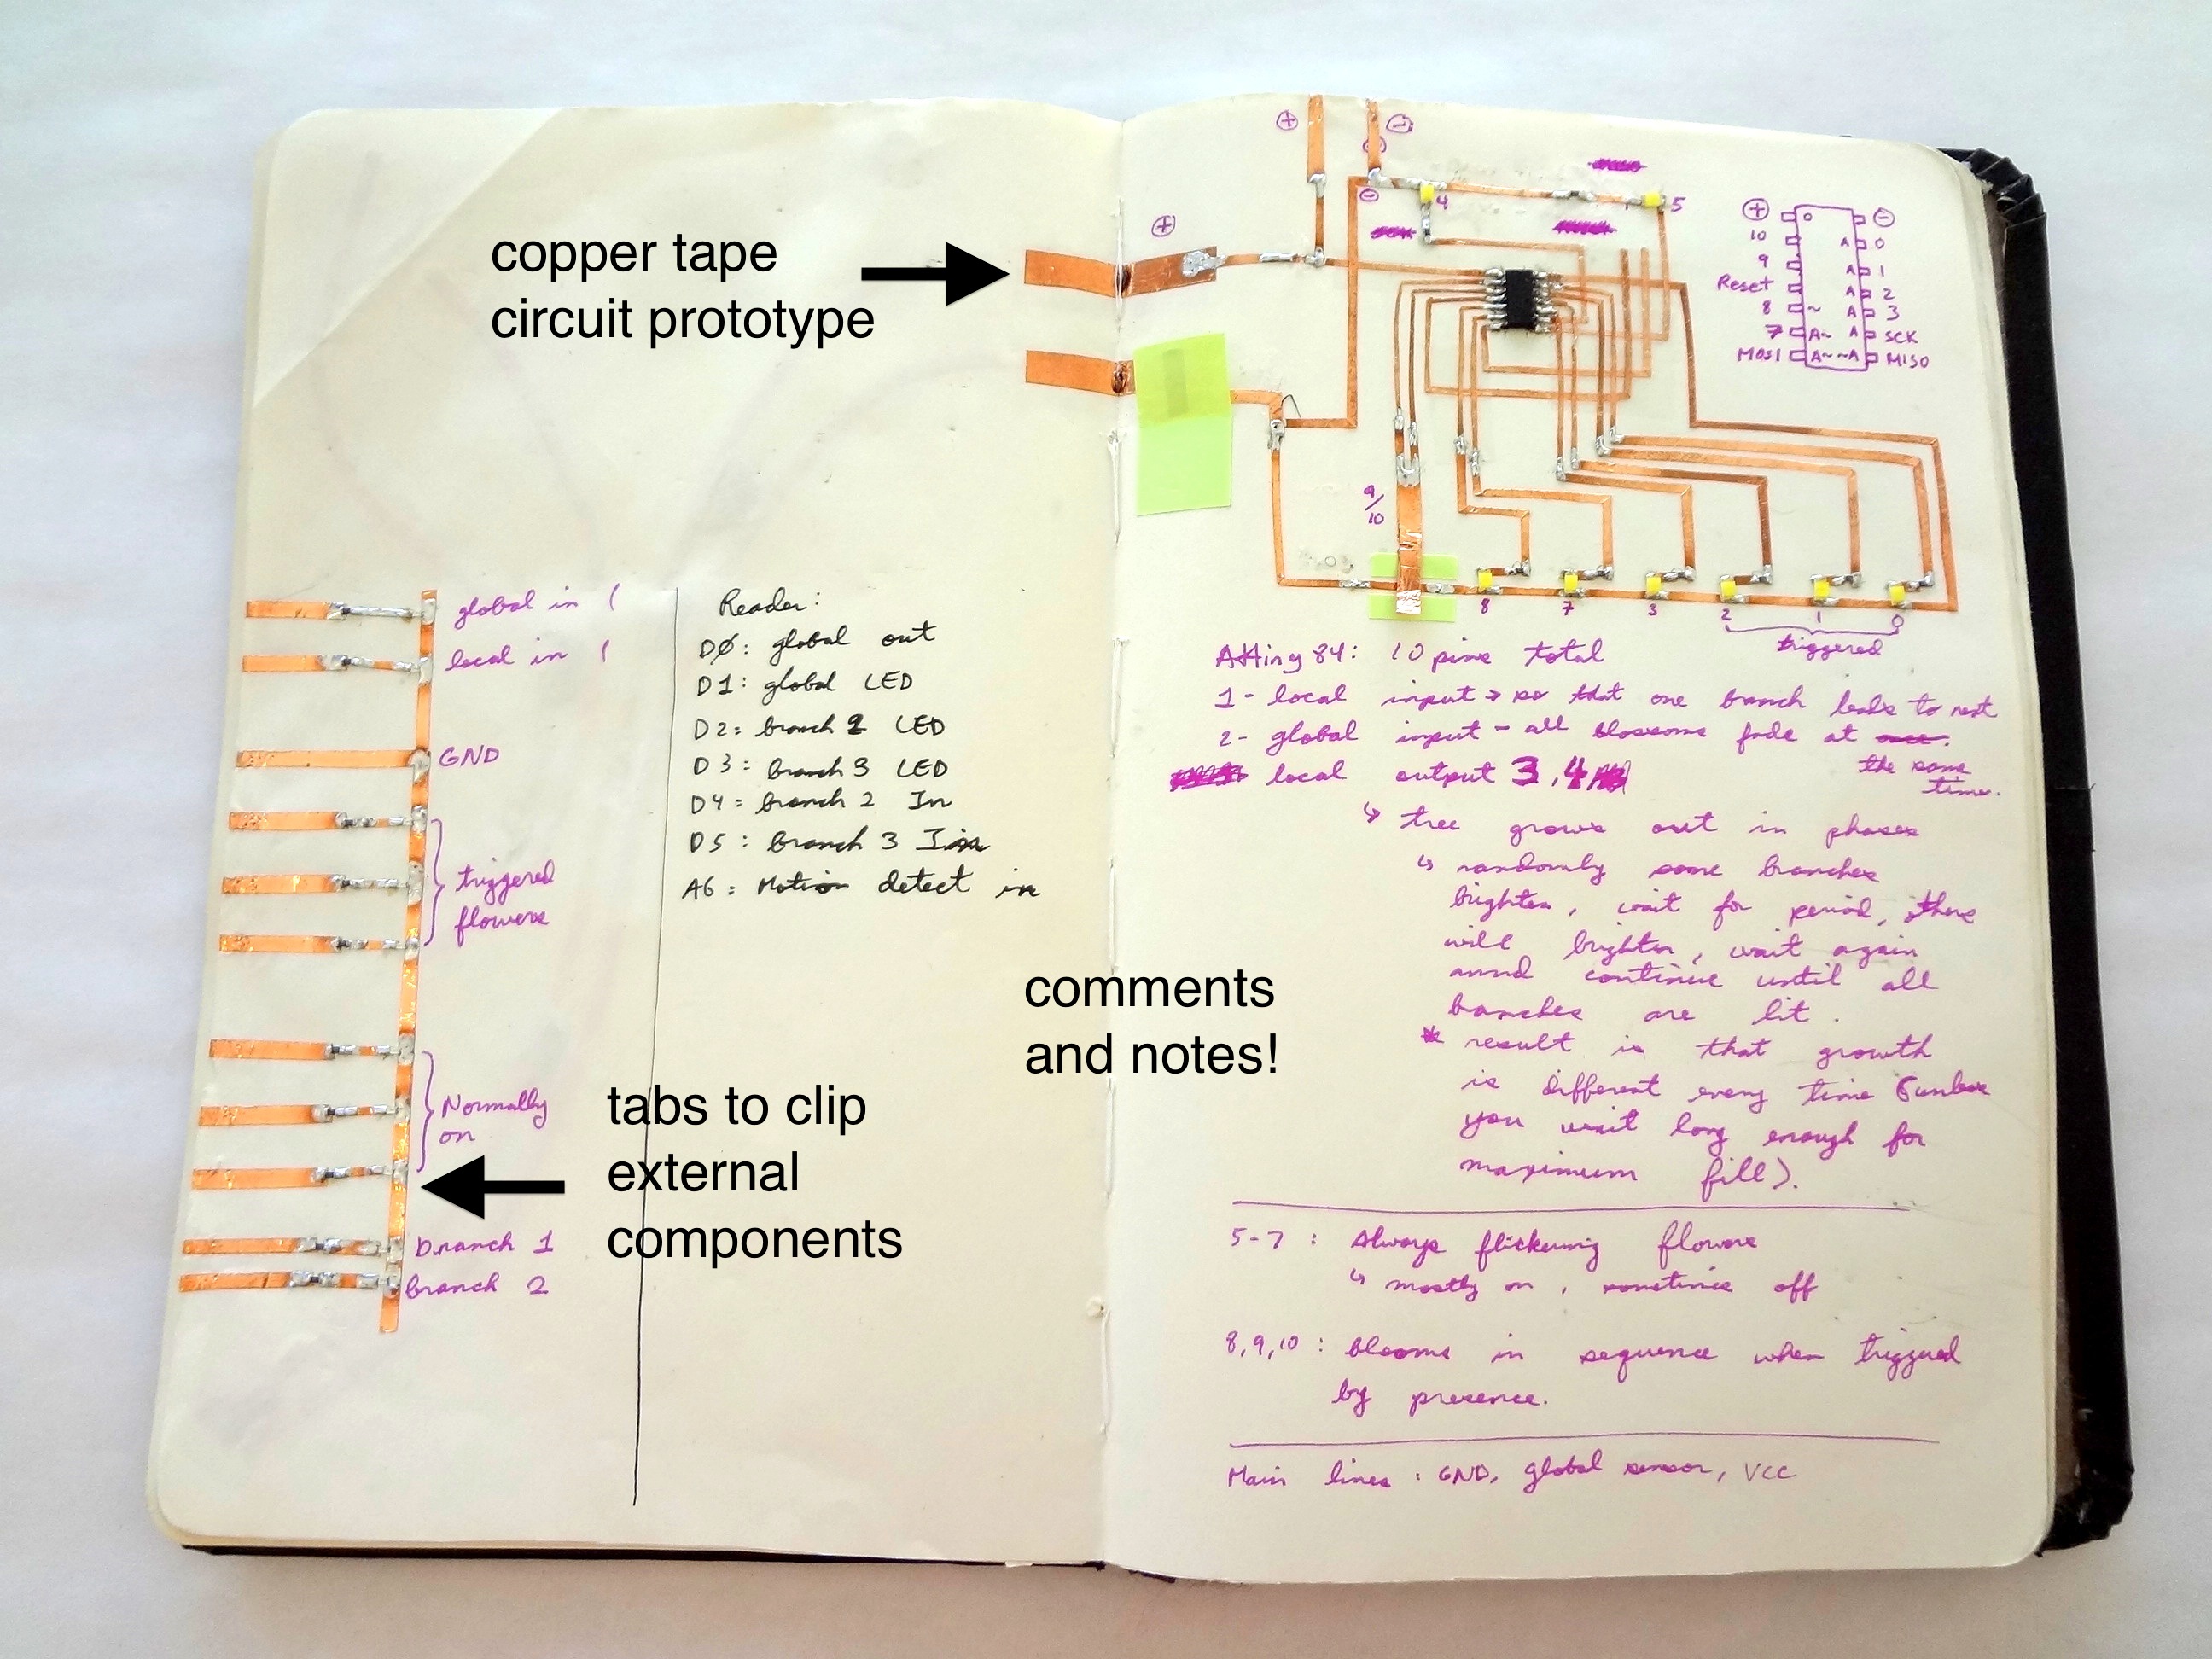 copper tape
circuit prototype
global in (
local in (
GND
triggered
flowers
Normally
on
branch 1
branch 2
tabs to clip
external
components
Reader:
DØ: global out
D1: global LED
D2: branch 2 LED
D3: branch 3 LED
D4: branch 2 In
D5: branch 3 In
A6: Motion detect in
comments
and notes!
+ -
-
+
4 5
+ -
10 A 0
9 A 1
Reset A 2
8 ~ A 3
7 A~ A SCK
MOSI A~ ~A MISO
9/10
8 7 3 2 1 0
triggered
Attiny84: 10 pins total
1- local input → so that one branch leads to next
2- global input - all blossoms fade at once.
the same
time.
local output 3,4
↳ tree grows out in phases
↳ randomly some branches
brighten, wait for period, there
will brighten, wait again
annd continue until all
branches are lit.
* result is that growth
is different every time (unless
you wait long enough for
maximum fill).
5-7: Always flickering flowers
↳ mostly on, sometimes off
8,9,10: blooms in sequence when triggered
by presence.
Main lines: GND, global sensor, VCC